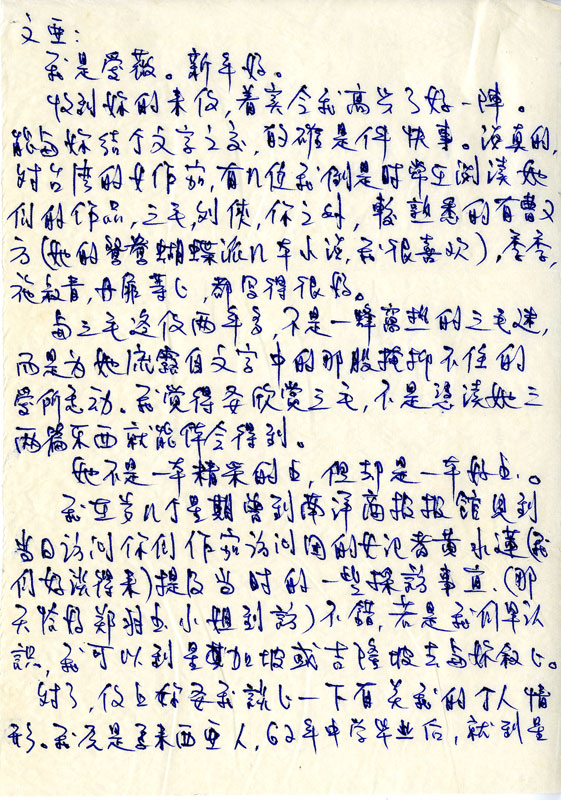 文亜：
我是爱薇。新年好。
收到妳的来信，着实令我高兴了好一陣。
能与妳结个文字之交，的確是件快事。说真的，
对台湾的女作茄，有几位我倒是时常在浏读她
们的作品，三毛，刘俠，你之外，較熟悉的有曹又
方（她的鴛鴦蝴蝶派几本小说，我很喜欢），季季，
施叔青，丹扉等し，都写得很好。
与三毛送信两年多，不是一蜂窩挫的三毛迷，
而是为她流露自文字中的那股掩抑不住的
爱所感动。我觉得要欣赏三毛，不是慿读她三
两篇东西就能体会得到。
她不是一本精采的书，但却是一本好书。
我在前几个星期曾到南洋商报报館见到
当日访问你们作茄访问团的女记者黄水蓮（我
们好谈得来）提及当时的一些採訪事宜．（那
天恰好郑羽书小姐到訪）不错，若是我们早认
識，我可以到星加坡或吉隆坡去与妳叙し。
对了，信上妳要我談し一下有关我的个人情
形。我原是马来西亚人，62年中学毕业后，就到星